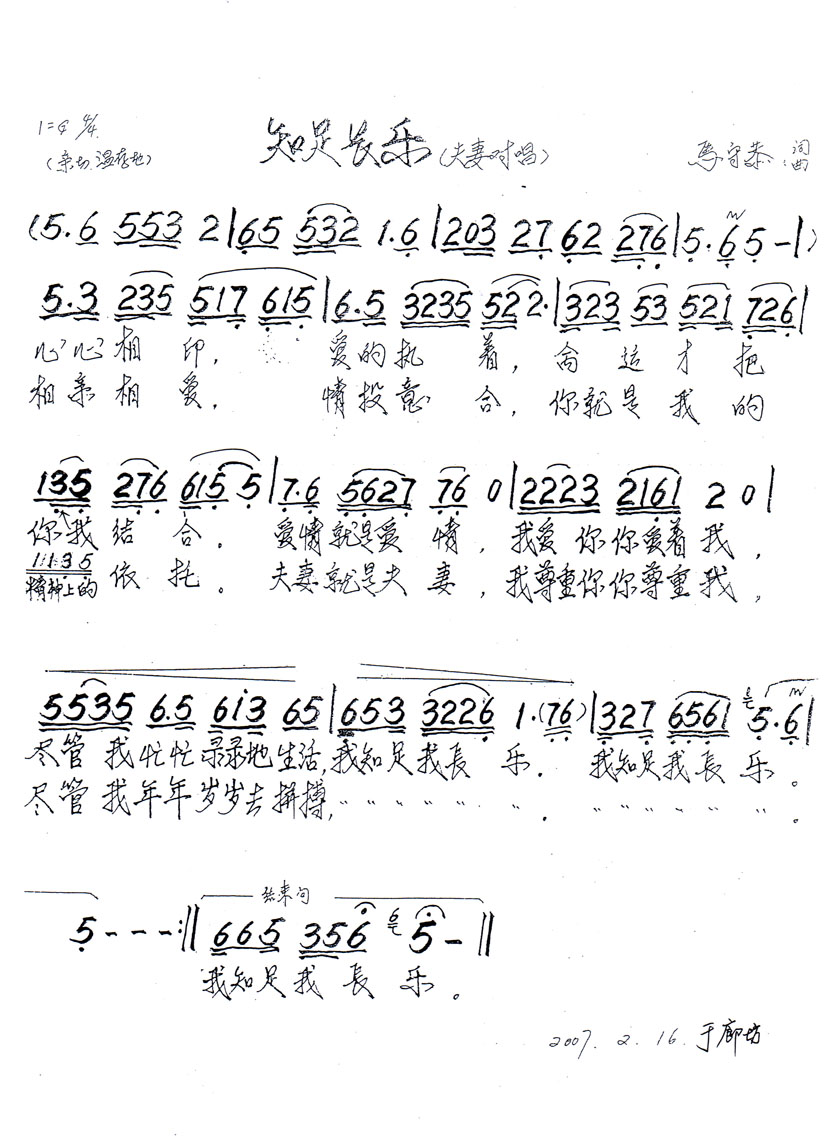 1= 4/4 知足長乐(夫妻对唱) 马守恭 词曲
(亲切 温存地)
(5.6 553 2|65 532 1.6|203 27 62 276|5.65-|)
5.3 235 517 615|6.5 3235 522.|323 53 521 726|
心心相印， 爱的执着，命运才把
相亲相爱， 情投意合，你就是我的
135 276 615 5|7.6 5627 76 0|2223 2161 2 0|
你我结合。爱情就是爱情，我爱你你爱着我，
1135
精神上的依托。夫妻就是夫妻，我尊重你你尊重我，
5535 6.5 6i3 65|653 3226 1.(76)|327 6561 5.6|
尽管我忙忙录录地生活，我知足我長乐. 我知足我長乐。
尽管我年年岁岁去拼搏，〃〃〃〃〃〃. 〃〃〃〃〃〃。
结束句
5---:||665 356 5-||
我知足我長乐。
2007.2.16.于廊坊